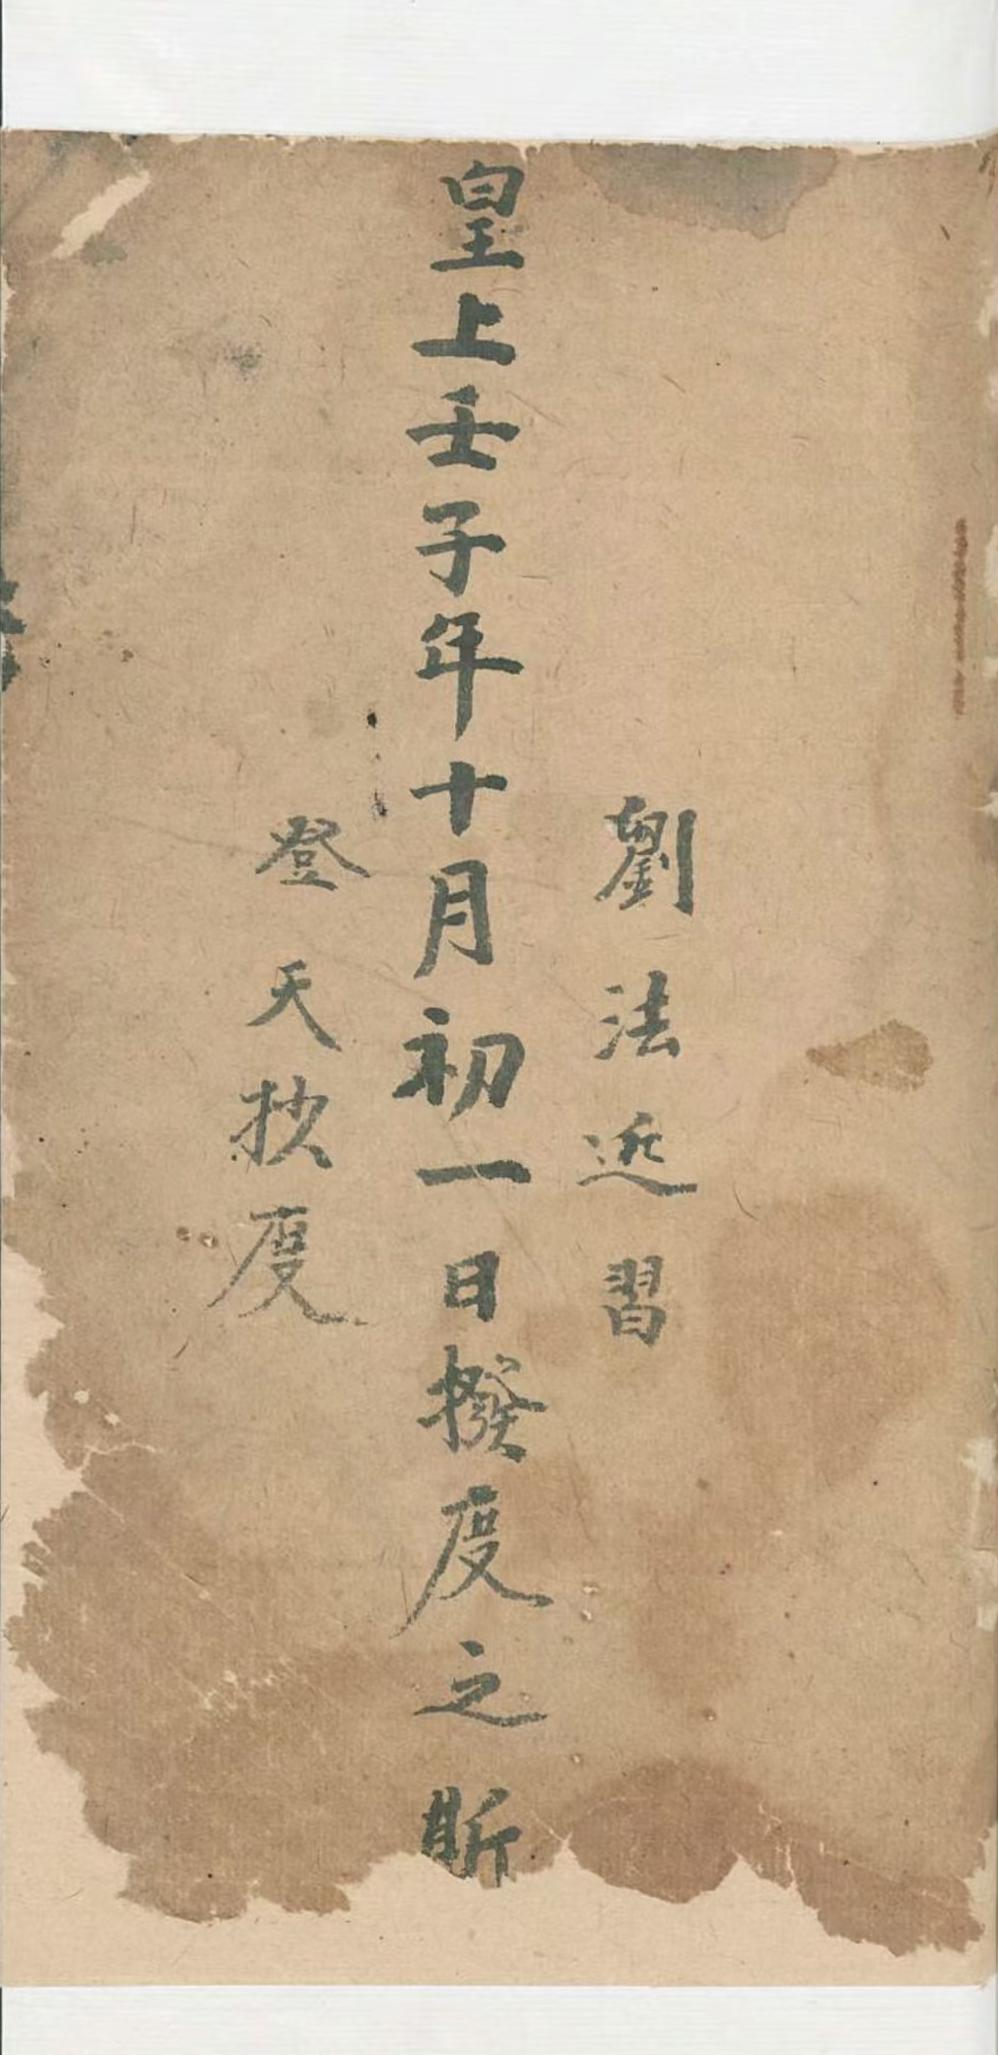 劉法近習
皇上壬子年十月初一日撥度之
登天抄度